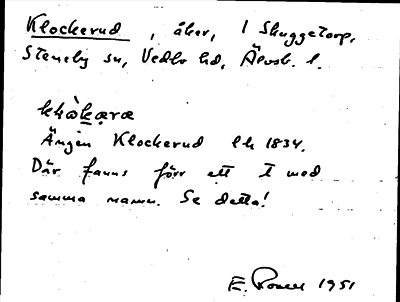 Klockerud , åker, 1 Skuggetorp,
Steneby sn, Vedbo hd, Älvsb. l.
klɷ̀kæræ
Ängen Klockerud lh 1834.
Där fanns förr ett t med
samma namn. Se detta!
E. 1951